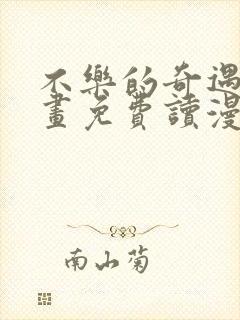 不樂的奇遇
畫免費讀漫
南山菊